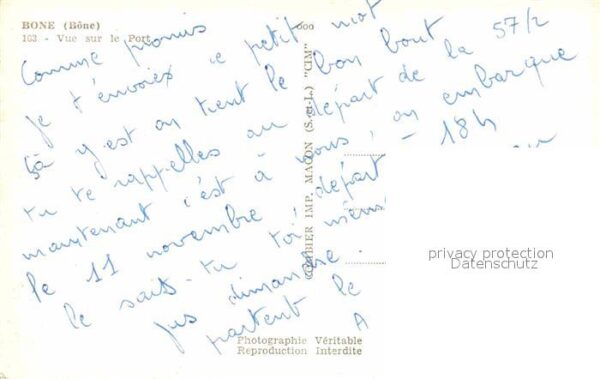 BONE (Bône)
163 - Vue sur le Port
Comme promis
je t'envoies ce petit mot
ça y est on tient le bon bout
tu te rappelles au départ de la 57/2
maintenant c'est à nous, on embarque
le 11 novembre départ - 18h
le sais-tu toi
dimanche
partent le
COMBIER IMP. MACON (S.-et-L.) "CIM"
privacy protection
Datenschutz
Photographie Véritable
Reproduction Interdite